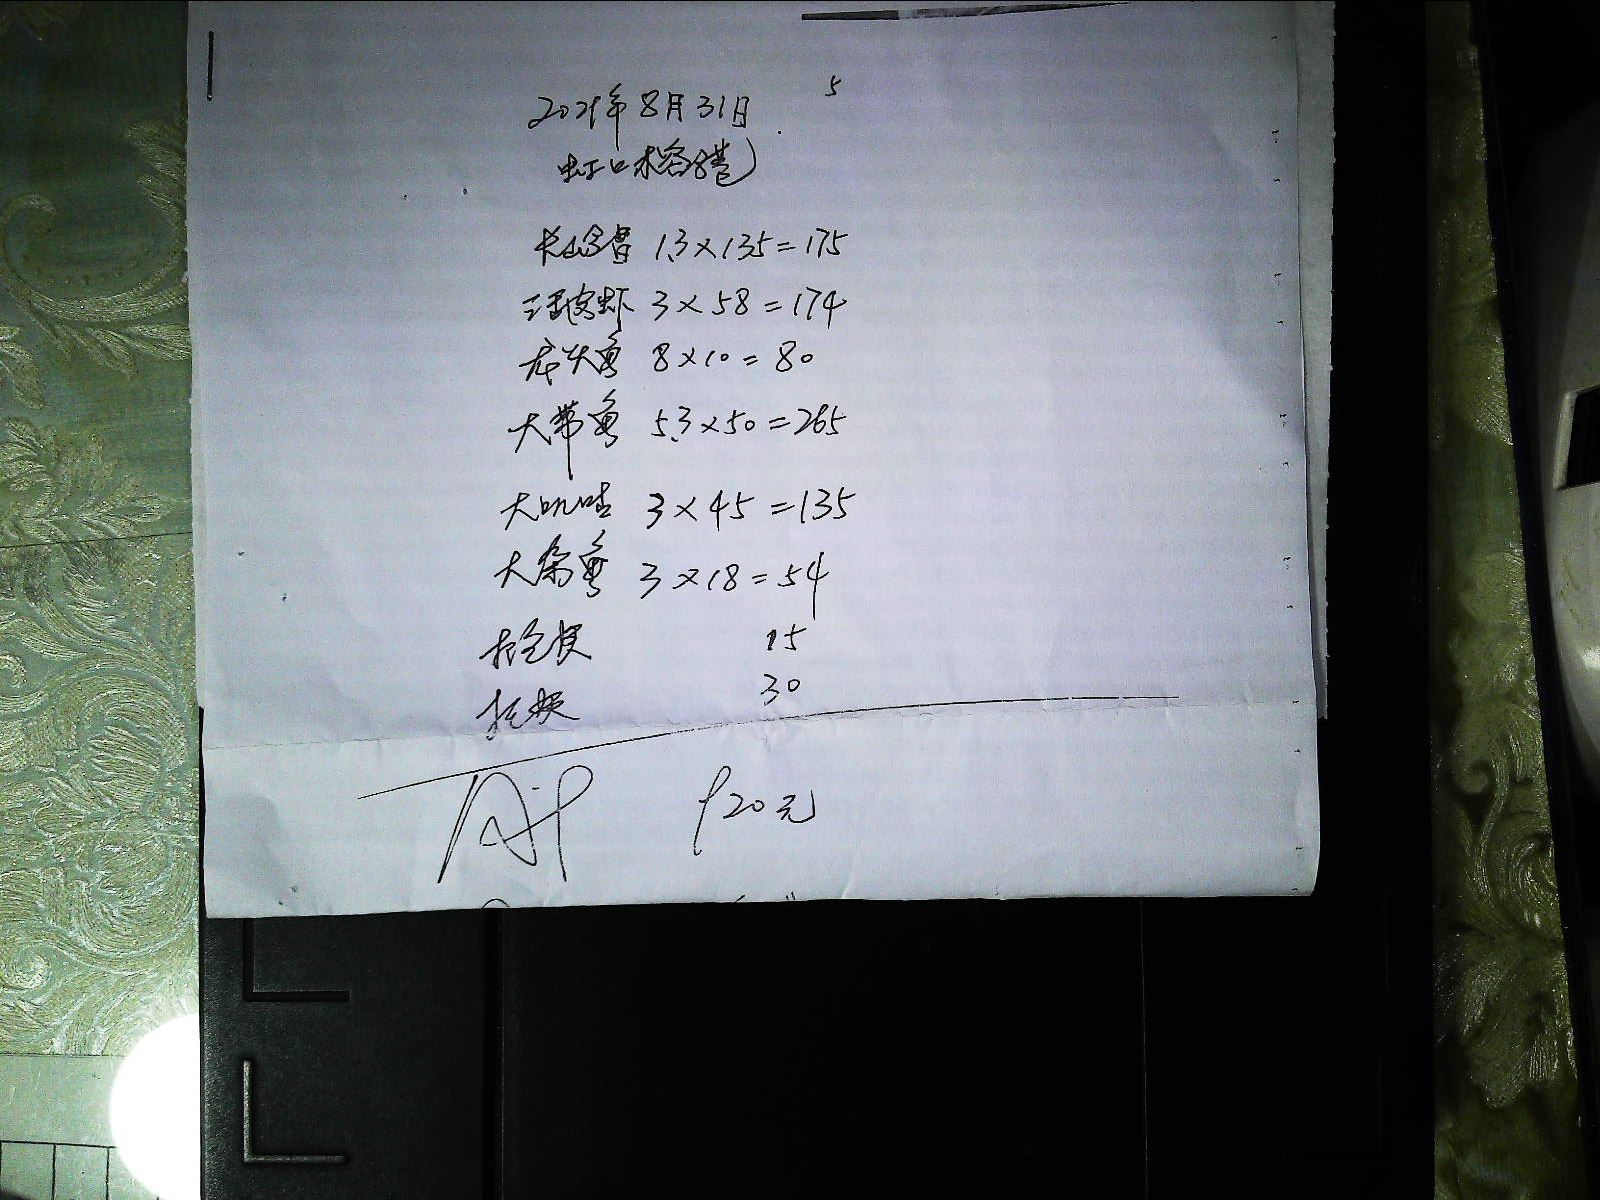 5
2021年8月31日
虹口木容港
长山鸟贵 1.3×135=175
江皮虾 3×58=174
龙头鱼 8×10=80
大带鱼 5.3×50=265
大叽咕 3×45=135
大条鱼 3×18=54
15
30
920元